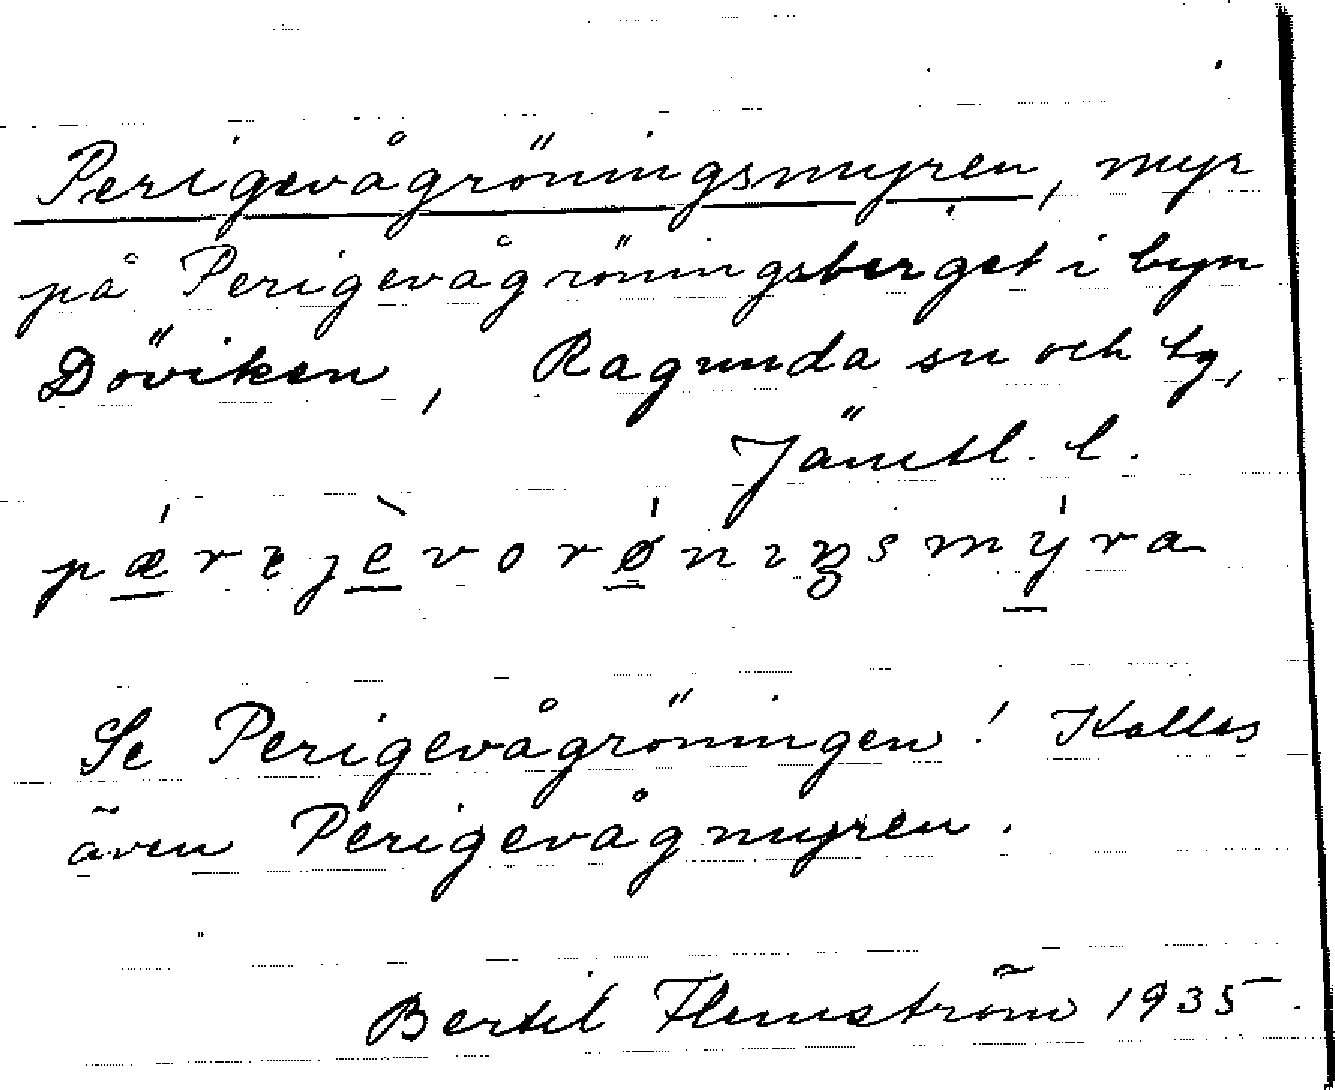 Perigevågröningsmyren, myr
på Perigevågröningsberget i byn
Döviken, Ragunda sn och tg,
Jämtl. l.
pǽrɛjèvorǿnıŋsmýra
Se Perigevågröningen! Kallas
även Perigevågmyren.
Bertil Flemström 1935